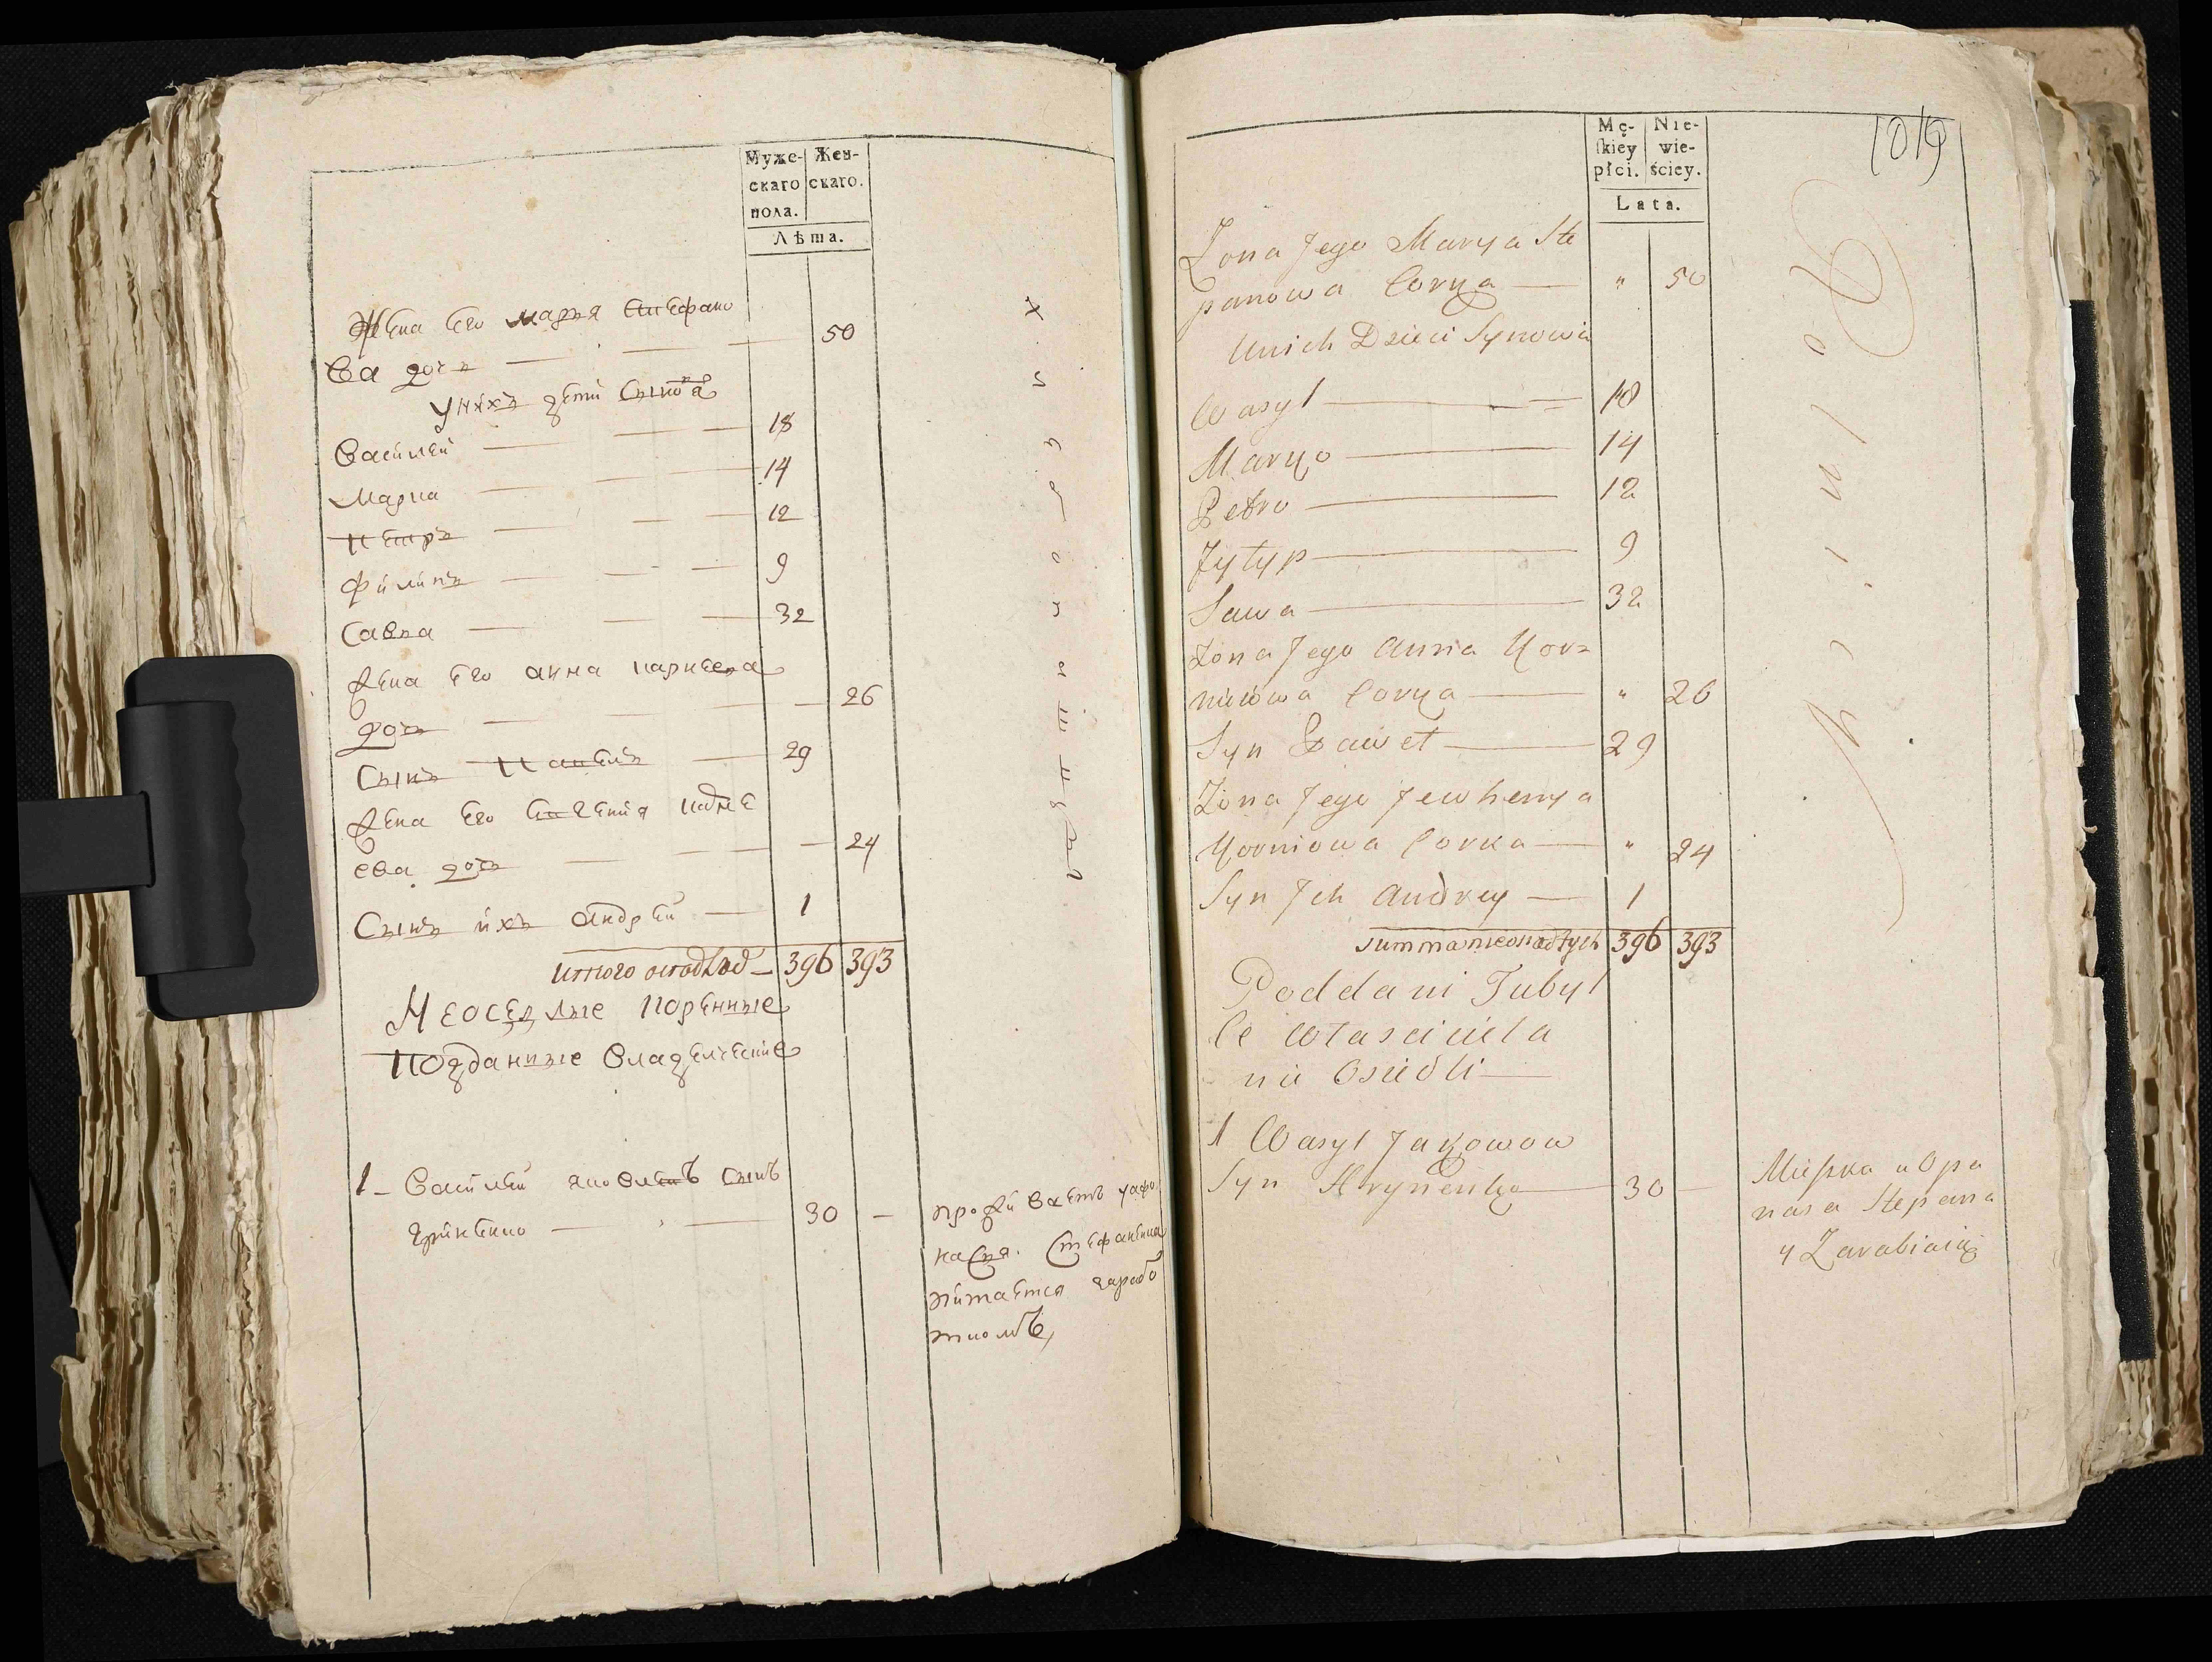 Муже-
скаго
пола.
Жен-
скаго.
Лѣта.
Жена его марья Стефано
ва дочь — 50
У нихъ дети Сынова
Василей — 18
Марка — 14
Петръ — 12
Филипъ — 9
Савка — 32
Жена его анна карнеева
дочь — 26
Сынъ Павелъ — 29
Жена его корнее
ева дочь — 24
Сынъ ихъ андрей — 1
итого — 396 393
Неоседлые коренные
Подданные владельческие
1 - Василей яковлевъ сынъ
гриненко — 30 —
проживаетъ уафо
насея. Стефаненка
питается зарабо
ткомъ,
1019
Mę-
ſkiey
płci.
Nie-
wie-
ściey.
Lata.
Zona Jego Marya Ste
panowa Corka — " 50
Unich Dzieci Synowie
Wasyl — 18
Marko — 14
Petro — 12
Fylyp — 9
Sawa — 32
Zona Jego Anna Kor=
niiowa Corka — " 26
Syn Paweł — 29
Zona Jego Jewhenya
Korniowa Corka — " 24
Syn Ich Andrey — 1
summa 396 393
Poddani Tubyl
ce Własciciela
nie Osiedli —
1 Wasyl Jakowow
Syn Hrynenko — 30 —
Mieszka u Opa
nasa Stepana
y Zarabiaią
Rolnik